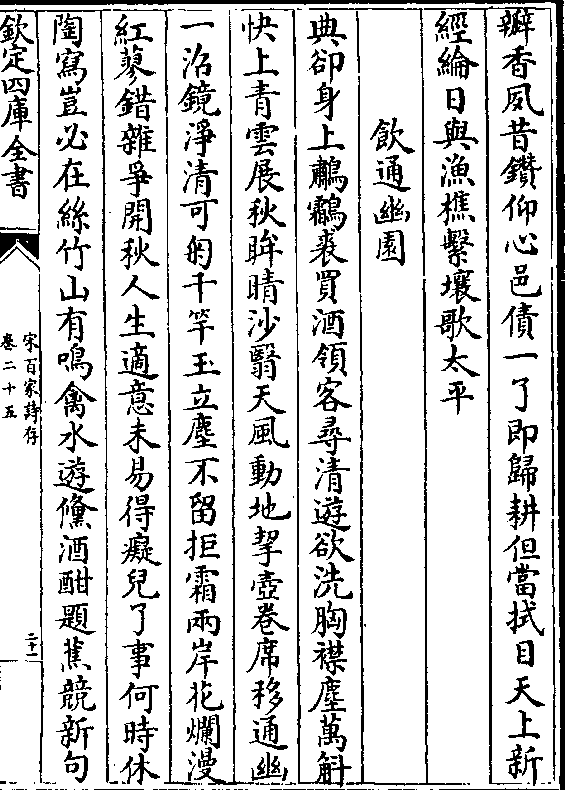 瓣香夙昔鑽仰心邑債一了即歸耕但當拭目天上新
經綸日與漁樵擊壤歌太平
飲通幽園
典卻身上鷫鸘裘買酒領客尋清遊欲洗胸襟塵萬斛
快上青雲展秋眸晴沙翳天風動地挈壺卷席移通幽
一沼鏡淨清可匊千竿玉立塵不留拒霜兩岸花爛漫
紅蓼錯雜爭開秋人生適意未易得癡兒了事何時休
陶寫豈必在絲竹山有鳴禽水遊鯈酒酣題蕉競新句
欽定四庫全書
宋百家詩存
卷二十五
二十一